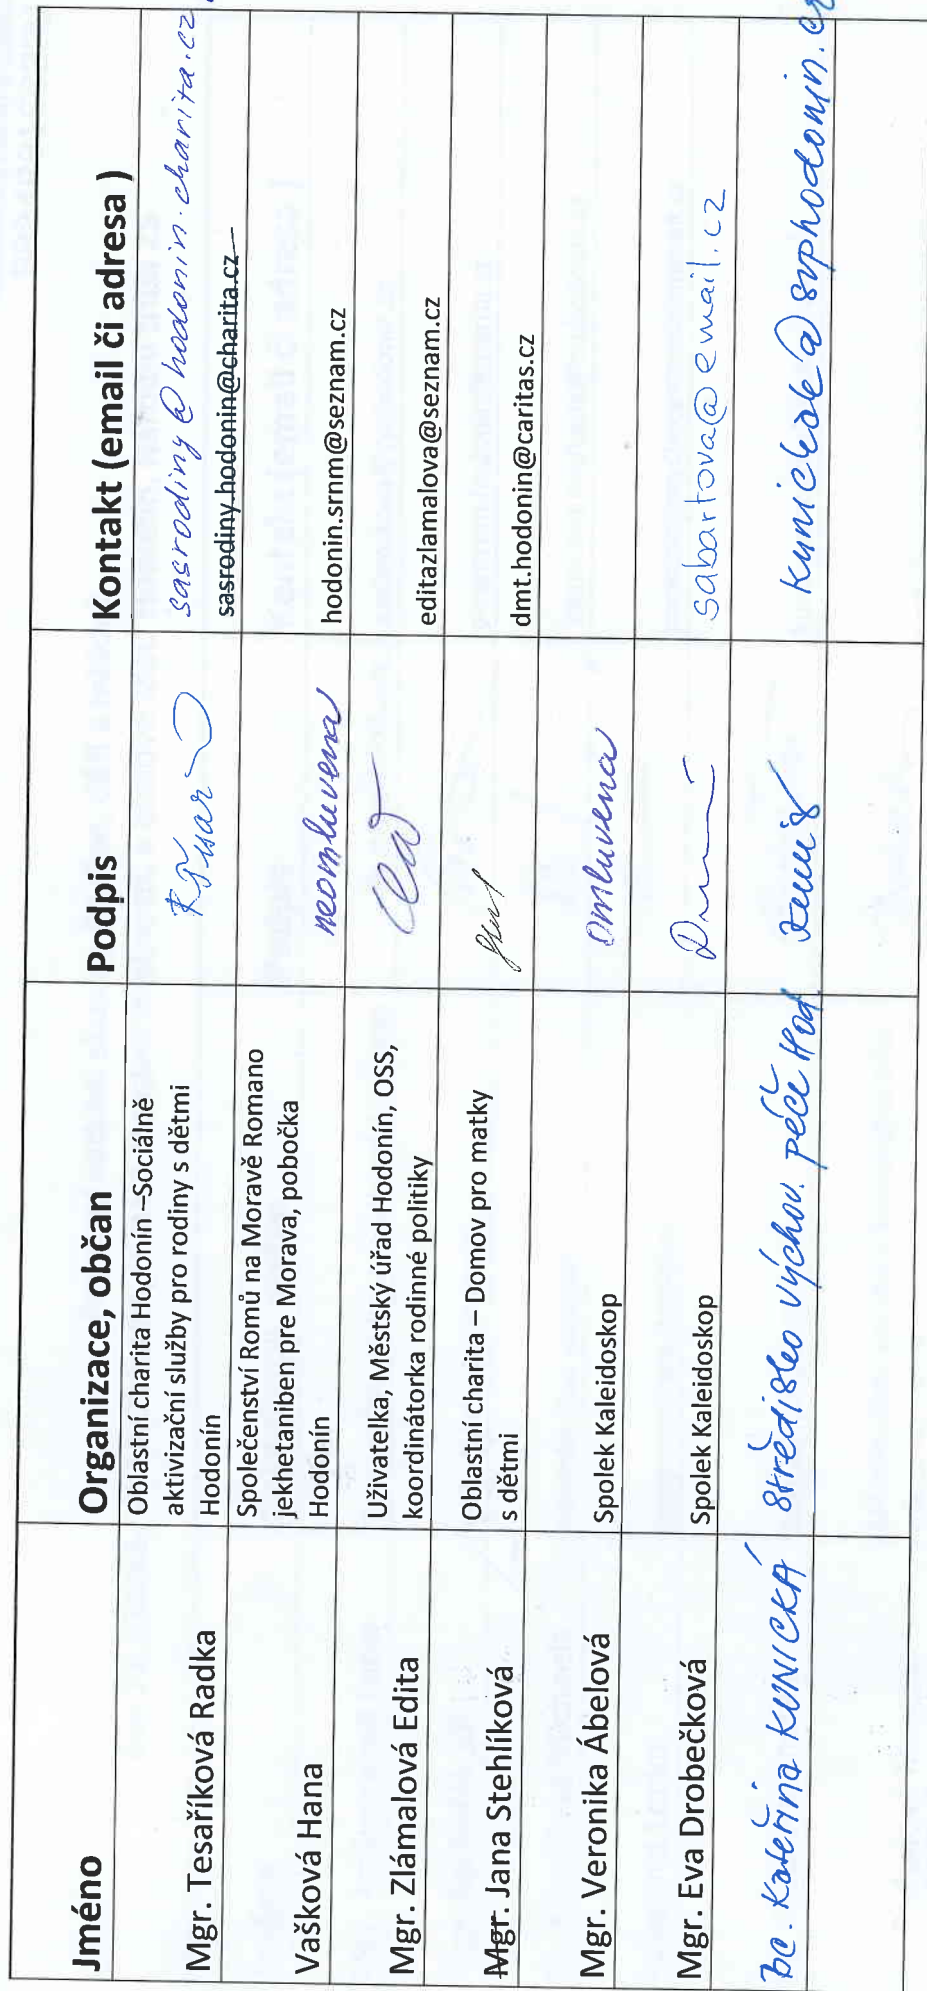 Jméno Organizace, občan Podpis Kontakt (email či adresa )
Mgr. Tesaříková Radka
Oblastní charita Hodonín –Sociálně
aktivizační služby pro rodiny s dětmi
Hodonín
sasrodiny@hodonin.charita.cz
sasrodiny.hodonin@charita.cz
Vašková Hana
Společenství Romů na Moravě Romano
jekhetaniben pre Morava, pobočka
Hodonín
neomluvena
hodonin.srnm@seznam.cz
Mgr. Zlámalová Edita
Uživatelka, Městský úřad Hodonín, OSS,
koordinátorka rodinné politiky
editazlamalova@seznam.cz
Mgr. Jana Stehlíková
Oblastní charita – Domov pro matky
s dětmi
dmt.hodonin@caritas.cz
Mgr. Veronika Ábelová
Spolek Kaleidoskop
omluvena
Mgr. Eva Drobečková
Spolek Kaleidoskop
sabartova@email.cz
Bc. Kateřina KUNICKÁ
Středisko výchov. péče Hod
kunicka@svphodonin.cz